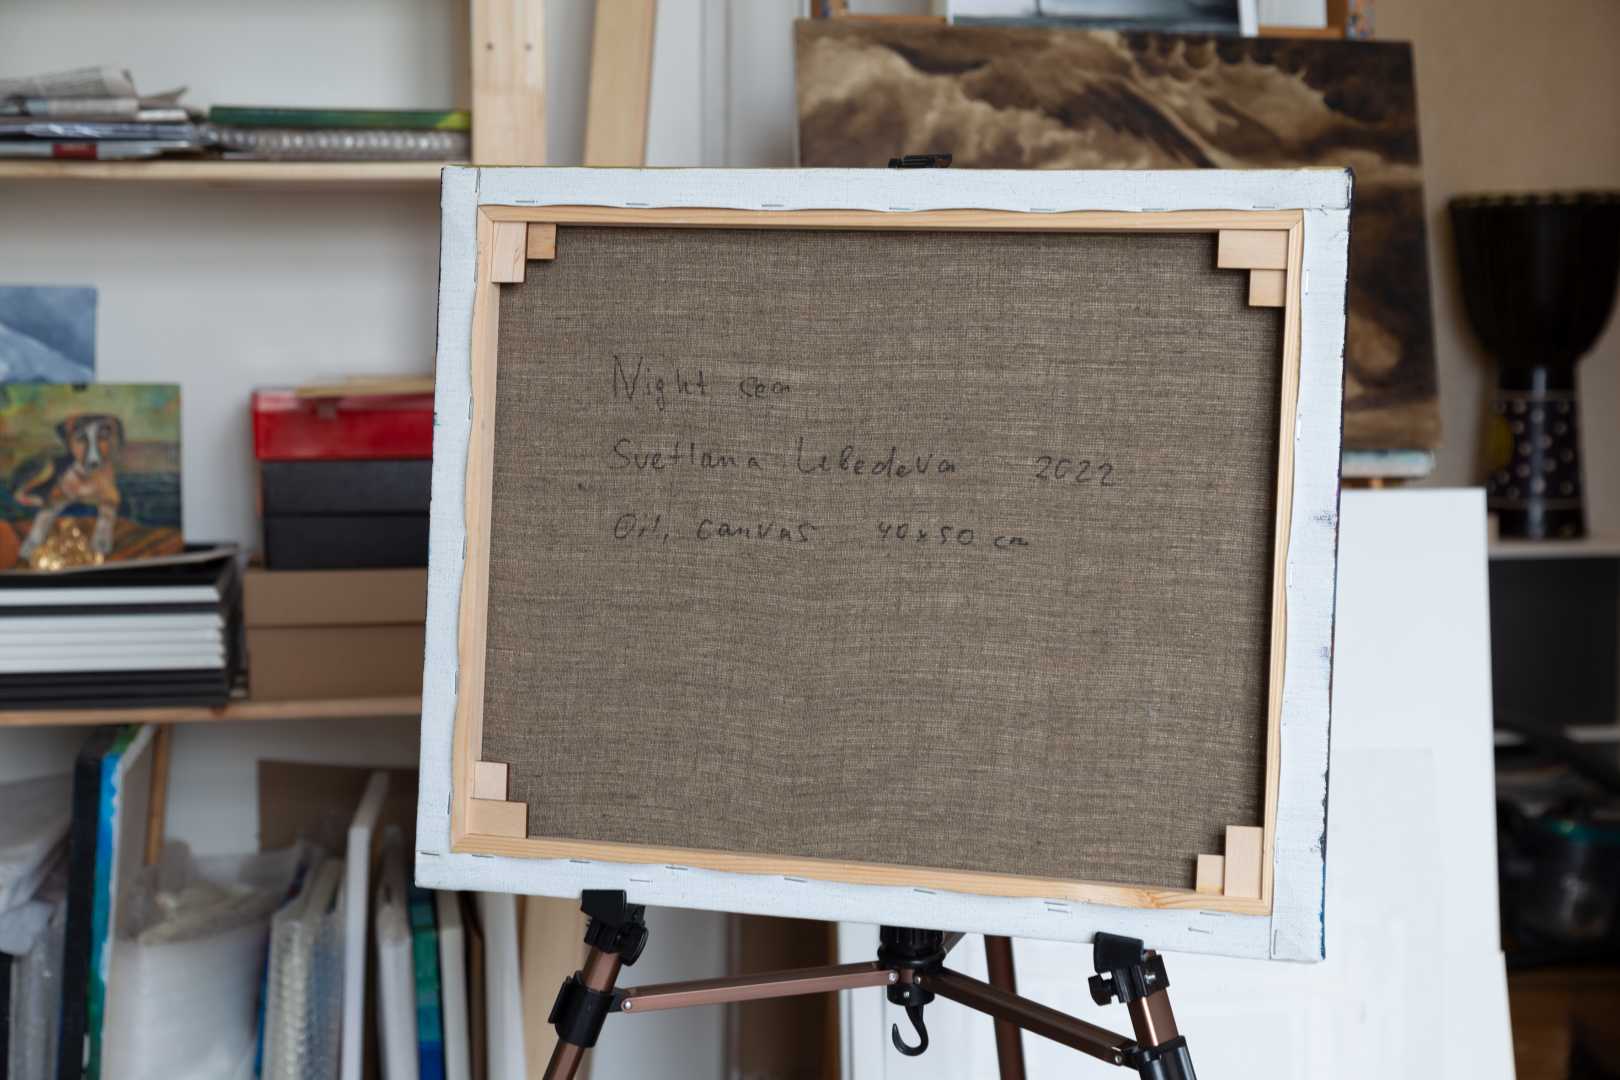 Night
Svetlana Lebedeva 2022
Oil, canvas 40x50 cm